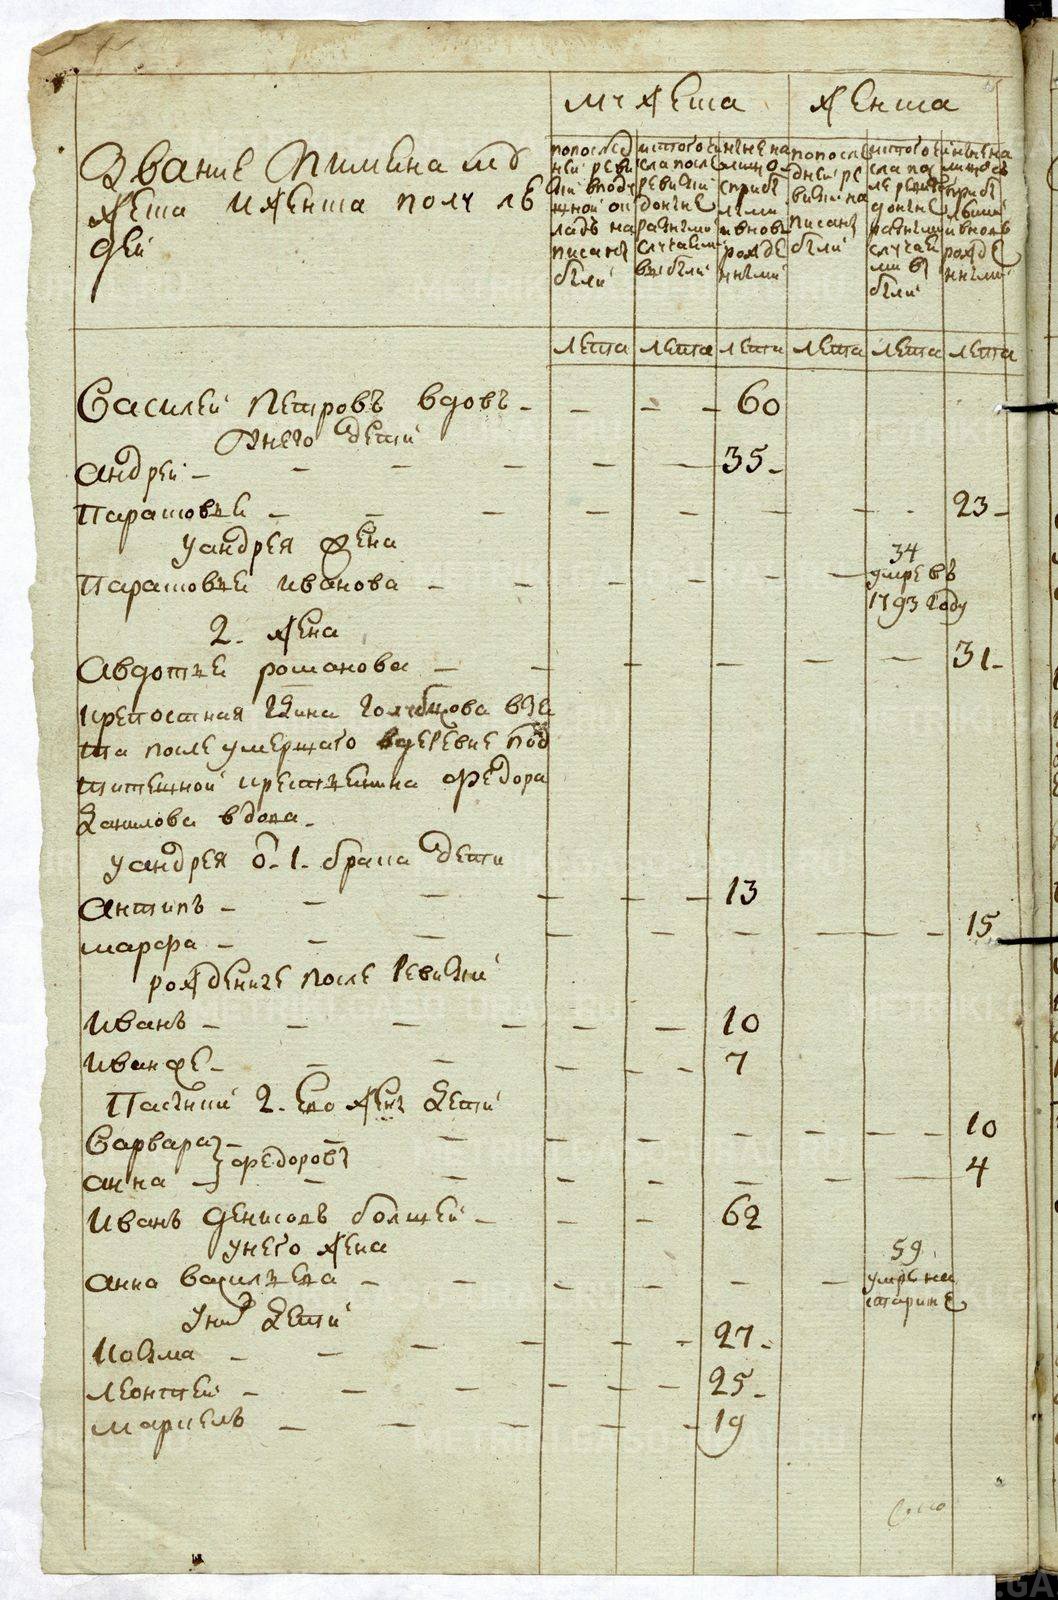 мужеска
женска
Звание имина му
жеска и женска полу лю
дей
попослед
ней реви
зии вподу
шной ок
ладъ на
писаны
были
изтого чи
сла после
ревизии
доныне
разными
случаями
выбыли
ныне на
лицо
сприбы
лыми
ивновь
рожде
нными
попосле
дней ре
визии на
писаны
были
изтого чи
сла пос
ле ревизи
доныне
разными
случая
ми вы
были
ныне на
лицо съ
прибы
лыми
ивновь
рожде
нными
лета лета лета лета лета лета
Василей Петровъ вдовъ - - - - 60
Унего дети
андрей - - - - - - 35-
Парасковья - - - - - - - - 23-
уандрея жена
Парасковья иванова - - - - - - - 34
умре въ
1793 году
2. жена
Авдотья романова - - - - - - 31-
крепостная Гдина Голубцова взе
та после умершаго вдеревне под
крестьянина Федора
Данилова вдова -
уандрея о. 1. брака дети
антипъ - - - - - - 13
марфа - - - - - - - - - 15
рожденые после Ревизии
иванъ - - - - - - - 10
иван же - - - - - - 7
Пасынки 2. ево жены дети
Варвара - - - - - - - - - 10
Федоровы
анна - - - - - - - - - 4
иванъ денисовъ болшей - - - 62
унего жена
анна васильева - - - - - - - 59
умре на
старине
Уних дети
козма - - - - - - 27-
леонтей - - - - - - 25-
маркелъ - - - - - - 19